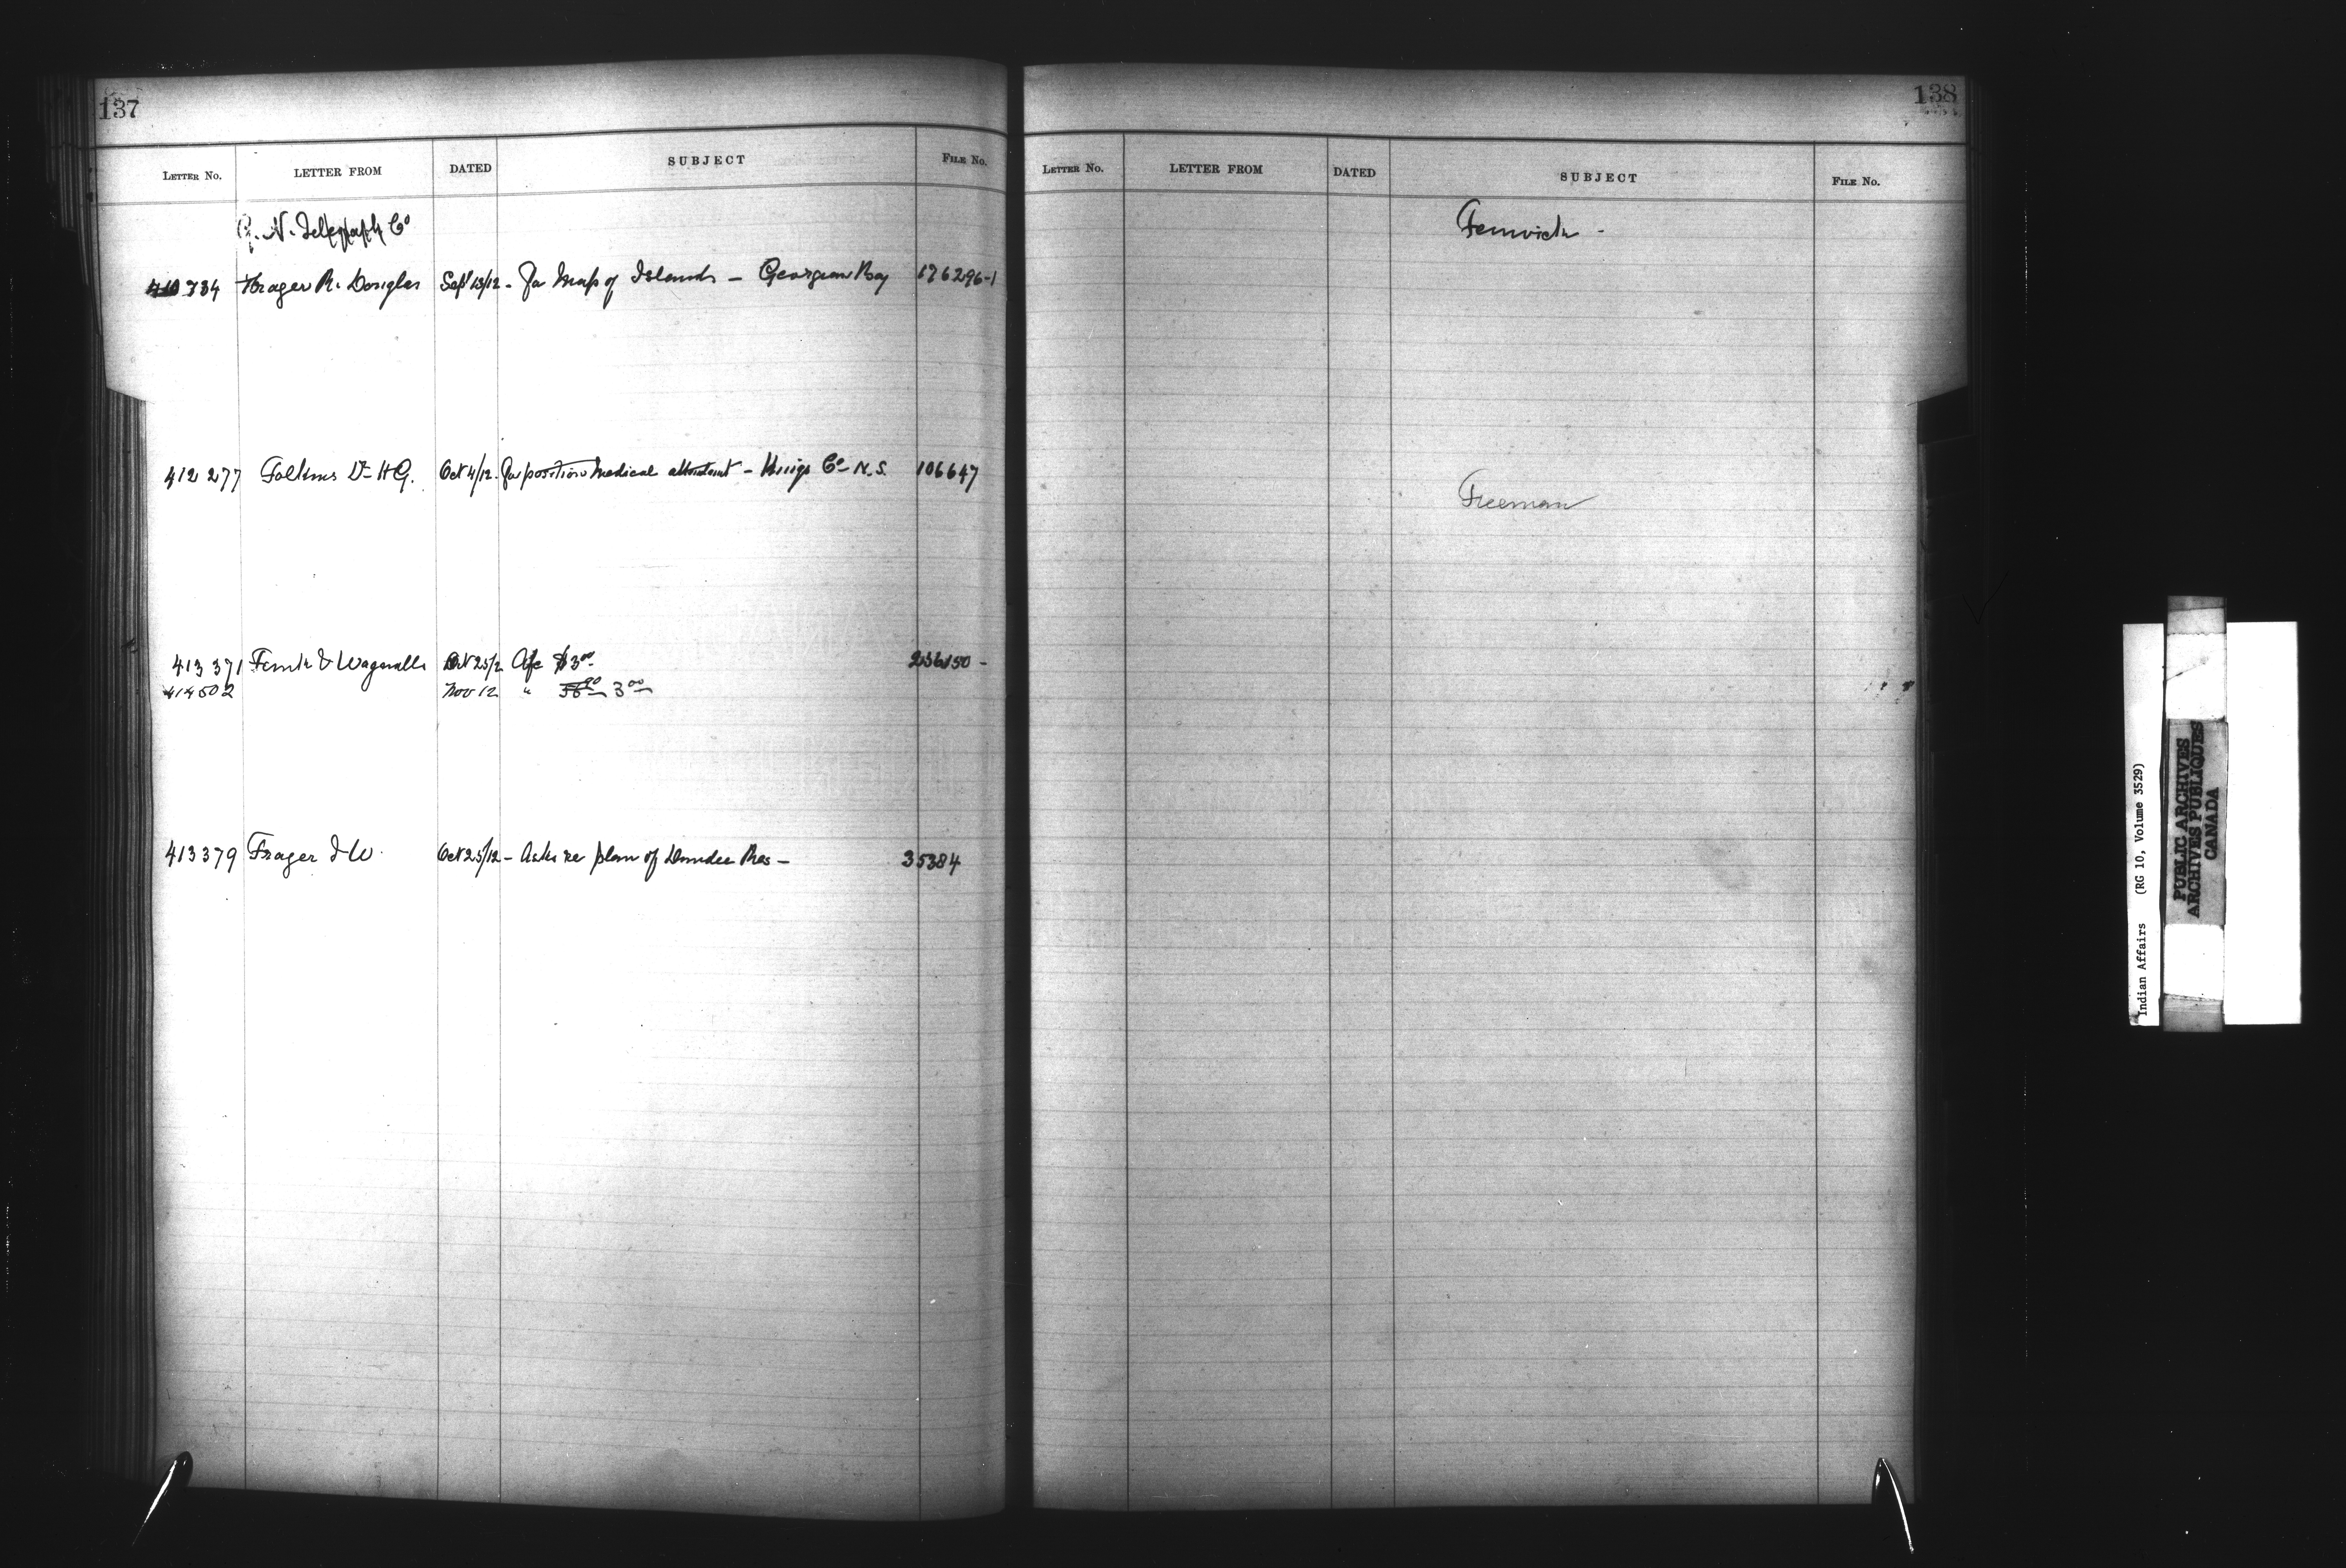 137
LETTER No. LETTER FROM DATED SUBJECT FILE No.
G. N. Telegraph Co
410 734 Frazer R. Douglas Sept 13/12 - For Map of Islands - Georgian Bay 176296-1
412 277 Folkins Dr H G. Oct 4/12. For position Medical attendant - Kings Co - N.S. 106647
413 371 Funk & Wagnalls Oct 25/12 A/c $3.00 236150 -
414502 Nov 12 " 3.00
413379 Frazer J W. Oct 25/12 - Asks re plan of Dundee Res - 35384
138
LETTER No. LETTER FROM DATED SUBJECT FILE No.
Fenwick -
Freeman
Indian Affairs (RG 10, Volume 3529)
PUBLIC ARCHIVES
ARCHIVES PUBLIQUES
CANADA